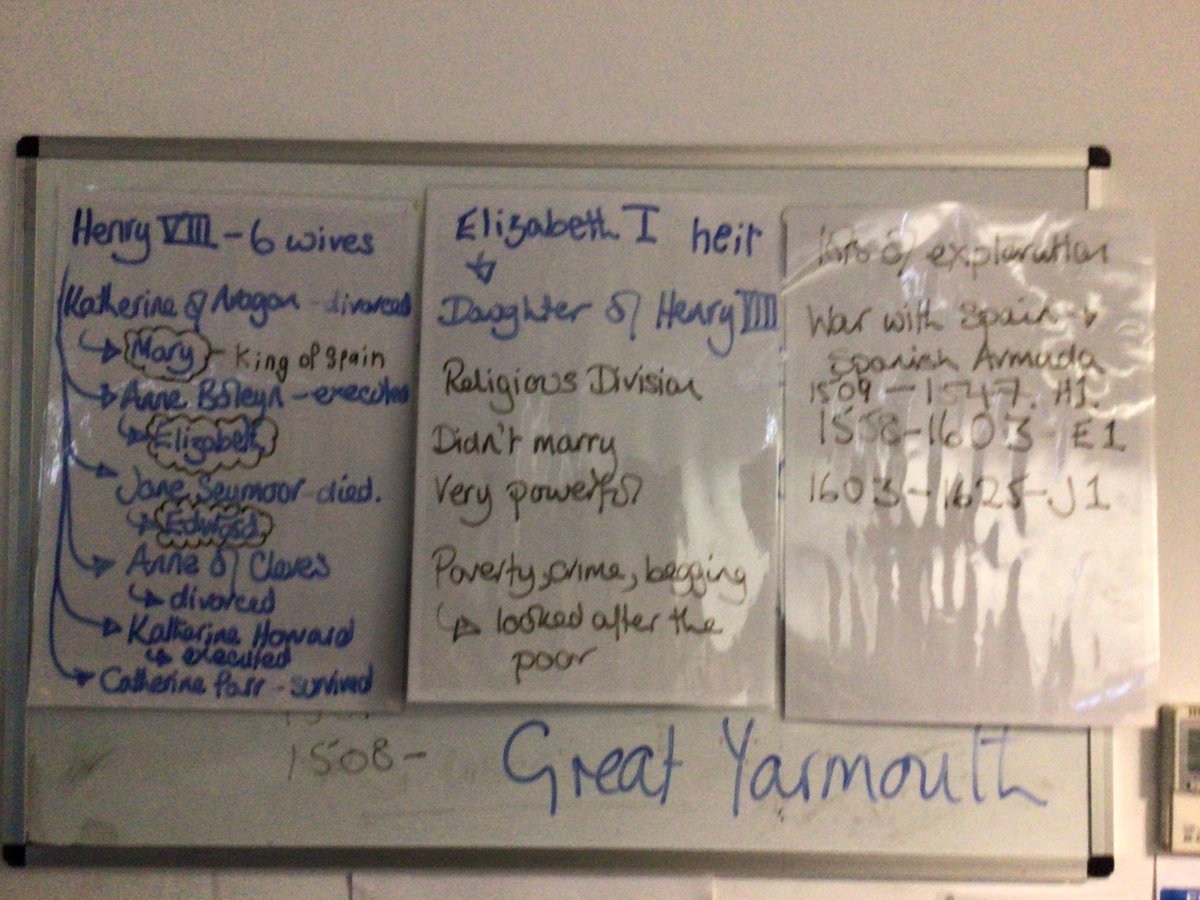 Henry VIII - 6 wives
Katherine of Aragon - divorced
Mary - King of Spain
Anne Boleyn - executed
Elizabeth
Jane Seymour - died.
Edward
Anne of Cleves
divorced
Katherine Howard
executed
Catherine Parr - survived
Elizabeth I heir
Daughter of Henry VIII
Religious Division
Didn't marry
Very powerful
Poverty, crime, begging
looked after the
poor
of exploration
War with Spain
Spanish Armada
1509 - 1547. H1.
1558-1603 - E1
1603-1625-J1
1508-
Great Yarmouth